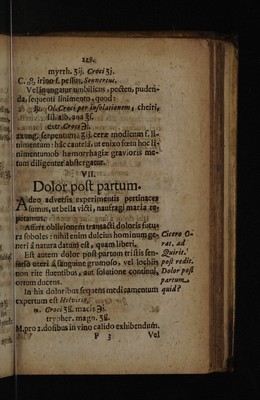 229.
myrrh. ʒij. Croci ʒj.
C. irino f. pessus. Sennertus.
Vel inungatur umbilicus, pecten, puden-
da, sequenti linimento, quod:
℞. Ol. Croci per insolationem, cheiri,
lil. alb. ana ℥ß.
extr. Croci ℈j.
axung. serpentum, ℥ij. ceræ modicum f. li-
nimentum: hâc cautelâ, ut enixo fœtu hoc li-
nimentum ob hæmorrhagiæ gravioris me-
tum diligenter abstergatur.
VII.
Dolor post partum.
Adeo adversis experimentis pertinaces
sumus, ut bella victi, naufragi maria re-
petamus.
Affert oblivionem transacti doloris futu-
ra soboles: nihil enim dulcius hominum ge-
neri â natura datum est, quam liberi.
Est autem dolor post partum tristis sen-
sus uteri â sanguine grumoso, vel lochiis
non rite fluentibus, aut solutione continui,
ortum ducens.
In his doloribus sequens medicamentum
expertum est Helvicio,
Croci ʒß. macis ℈j.
trypher. magn. ʒß.
M. pro 2. dosibus in vino calido exhibendum.
P 3 Vel
Cicero O-
rat. ad
Quirit.
post redit.
Dolor post
partum
quid?